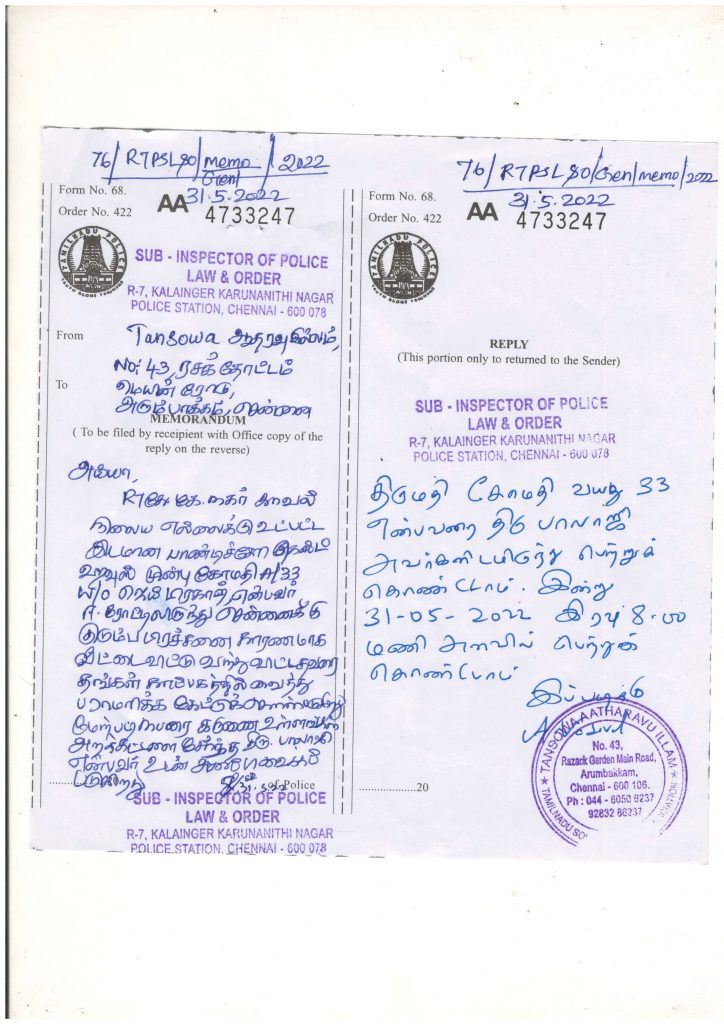 76/R7PSL&O/memo/2022
Gen/
31.5.2022
Form No. 68.
Order No. 422
AA 4733247
TAMILNADU POLICE
TRUTH ALONE TRIUMPHS
SUB - INSPECTOR OF POLICE
LAW & ORDER
R-7, KALAINGER KARUNANITHI NAGAR
POLICE STATION, CHENNAI - 600 078
From
Tansowa ஆதரவு இல்லம்,
No: 43, ரசக் தோட்டம்
To
மெயின் ரோடு,
அரும்பாக்கம், சென்னை
MEMORANDUM
( To be filed by receipient with Office copy of the
reply on the reverse)
அய்யா,
R7 கே.கே.நகர் காவல்
நிலைய எல்லைக்கு உட்பட்ட
இடமான பாண்டிச்சேரி
முன்பு கோமதி A/33
W/o என்பவர்
ஈரோட்டிலிருந்து சென்னைக்கு
குடும்ப பிரச்சனை காரணமாக
வீட்டைவிட்டு வந்து விட்டவரை
தங்கள் காப்பகத்தில் வைத்து
பராமரிக்க கேட்டுக்கொள்ளப்படுகிறது
மேற்படி நபரை கருணை உள்ளங்கள்
அறக்கட்டளை சேர்ந்த திரு. பாலாஜி
என்பவர் உடன் அனுப்பி வைக்கப்
படுகிறது
31.5.22
of Police
SUB - INSPECTOR OF POLICE
LAW & ORDER
R-7, KALAINGER KARUNANITHI NAGAR
POLICE STATION, CHENNAI - 600 078
76/R7PSL&O/Gen/memo/2022
31.5.2022
Form No. 68.
Order No. 422
AA 4733247
TAMILNADU POLICE
TRUTH ALONE TRIUMPHS
REPLY
(This portion only to returned to the Sender)
SUB - INSPECTOR OF POLICE
LAW & ORDER
R-7, KALAINGER KARUNANITHI NAGAR
POLICE STATION, CHENNAI - 600 078
திருமதி கோமதி வயது 33
என்பவரை திரு பாலாஜி
அவர்களிடமிருந்து பெற்றுக்
கொண்டோம். இன்று
31-05-2022 இரவு 8.00
மணி அளவில் பெற்றுக்
கொண்டோம்
இப்படிக்கு
........................20
TANSOWA AATHARAVU ILLAM
No. 43,
Razack Garden Main Road,
Arumbakkam,
Chennai - 600 106.
Ph : 044 - 6050 6237
92832 86237